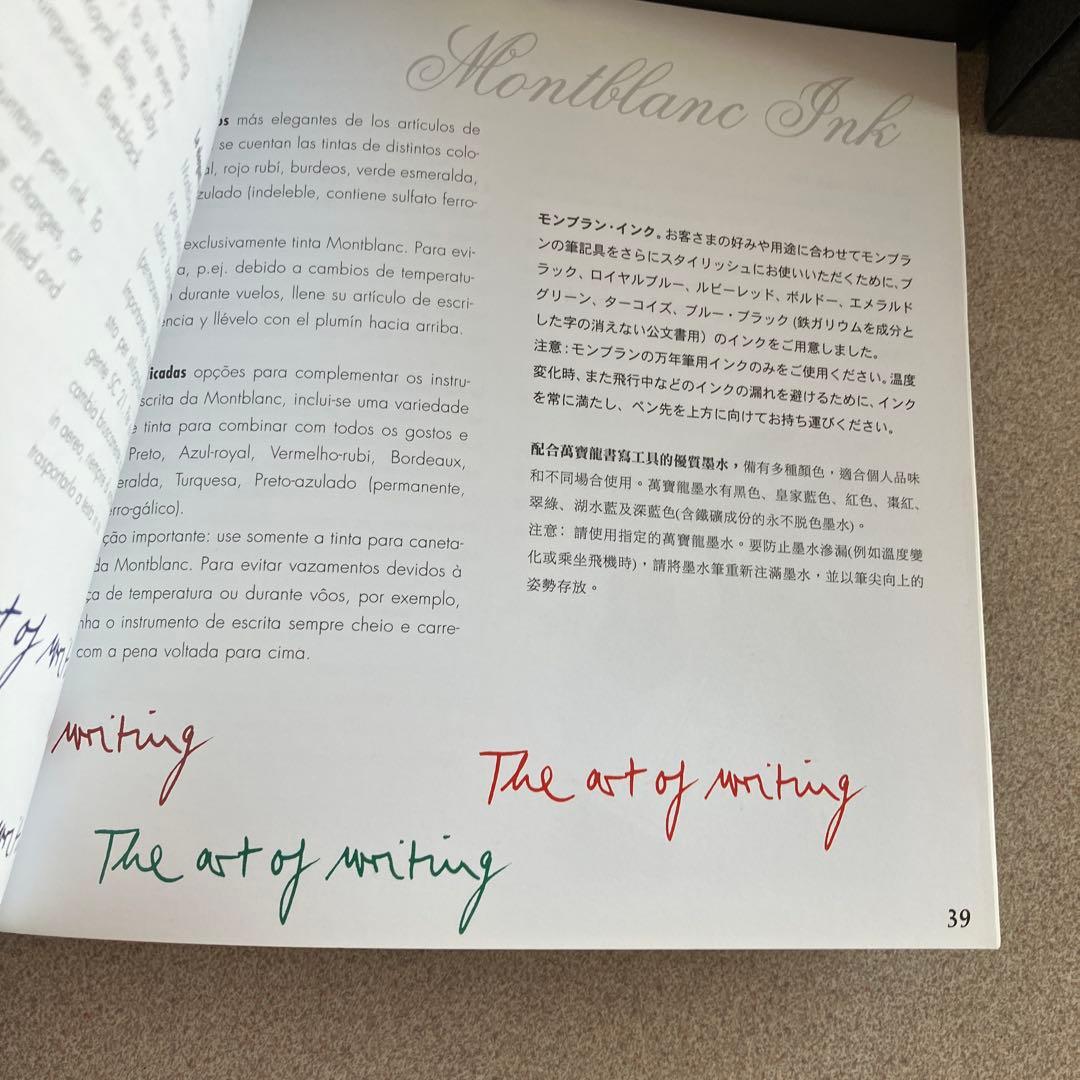 wissing
to suit every
Royal Blue, Ruby
Turquoise, Blue-black
pen ink. To
changes, or
filled and
Montblanc Ink
más elegantes de los artículos de
se cuentan las tintas de distintos colo-
rojo rubí, burdeos, verde esmeralda,
(indeleble, contiene sulfato ferro-
exclusivamente tinta Montblanc. Para evi-
p.ej. debido a cambios de temperatu-
durante vuelos, llene su artículo de escri-
y llévelo con el plumín hacia arriba.
opções para complementar os instru-
da Montblanc, inclui-se uma variedade
tinta para combinar com todos os gostos e
Preto, Azul-royal, Vermelho-rubi, Bordeaux,
Turquesa, Preto-azulado (permanente,
importante: use somente a tinta para caneta-
da Montblanc. Para evitar vazamentos devidos à
de temperatura ou durante vôos, por exemplo,
o instrumento de escrita sempre cheio e carre-
com a pena voltada para cima.
モンブラン・インク。お客さまの好みや用途に合わせてモンブラ
ンの筆記具をさらにスタイリッシュにお使いいただくために、ブ
ラック、ロイヤルブルー、ルビーレッド、ボルドー、エメラルド
グリーン、ターコイズ、ブルー・ブラック (鉄ガリウムを成分と
した字の消えない公文書用) のインクをご用意しました。
注意：モンブランの万年筆用インクのみをご使用ください。温度
変化時、また飛行中などのインクの漏れを避けるために、インク
を常に満たし、ペン先を上方に向けてお持ち運びください。
配合萬寶龍書寫工具的優質墨水，備有多種顏色，適合個人品味
和不同場合使用。萬寶龍墨水有黑色、皇家藍色、紅色、棗紅、
翠綠、湖水藍及深藍色(含鐵礦成份的永不脱色墨水)。
注意： 請使用指定的萬寶龍墨水。要防止墨水滲漏(例如溫度變
化或乘坐飛機時)，請將墨水筆重新注滿墨水，並以筆尖向上的
姿勢存放。
of
writing
The art of writing
The art of writing
39